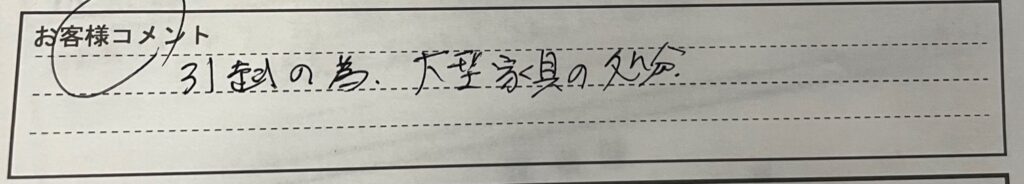 お客様コメント
引越の為. 大型家具の処分.